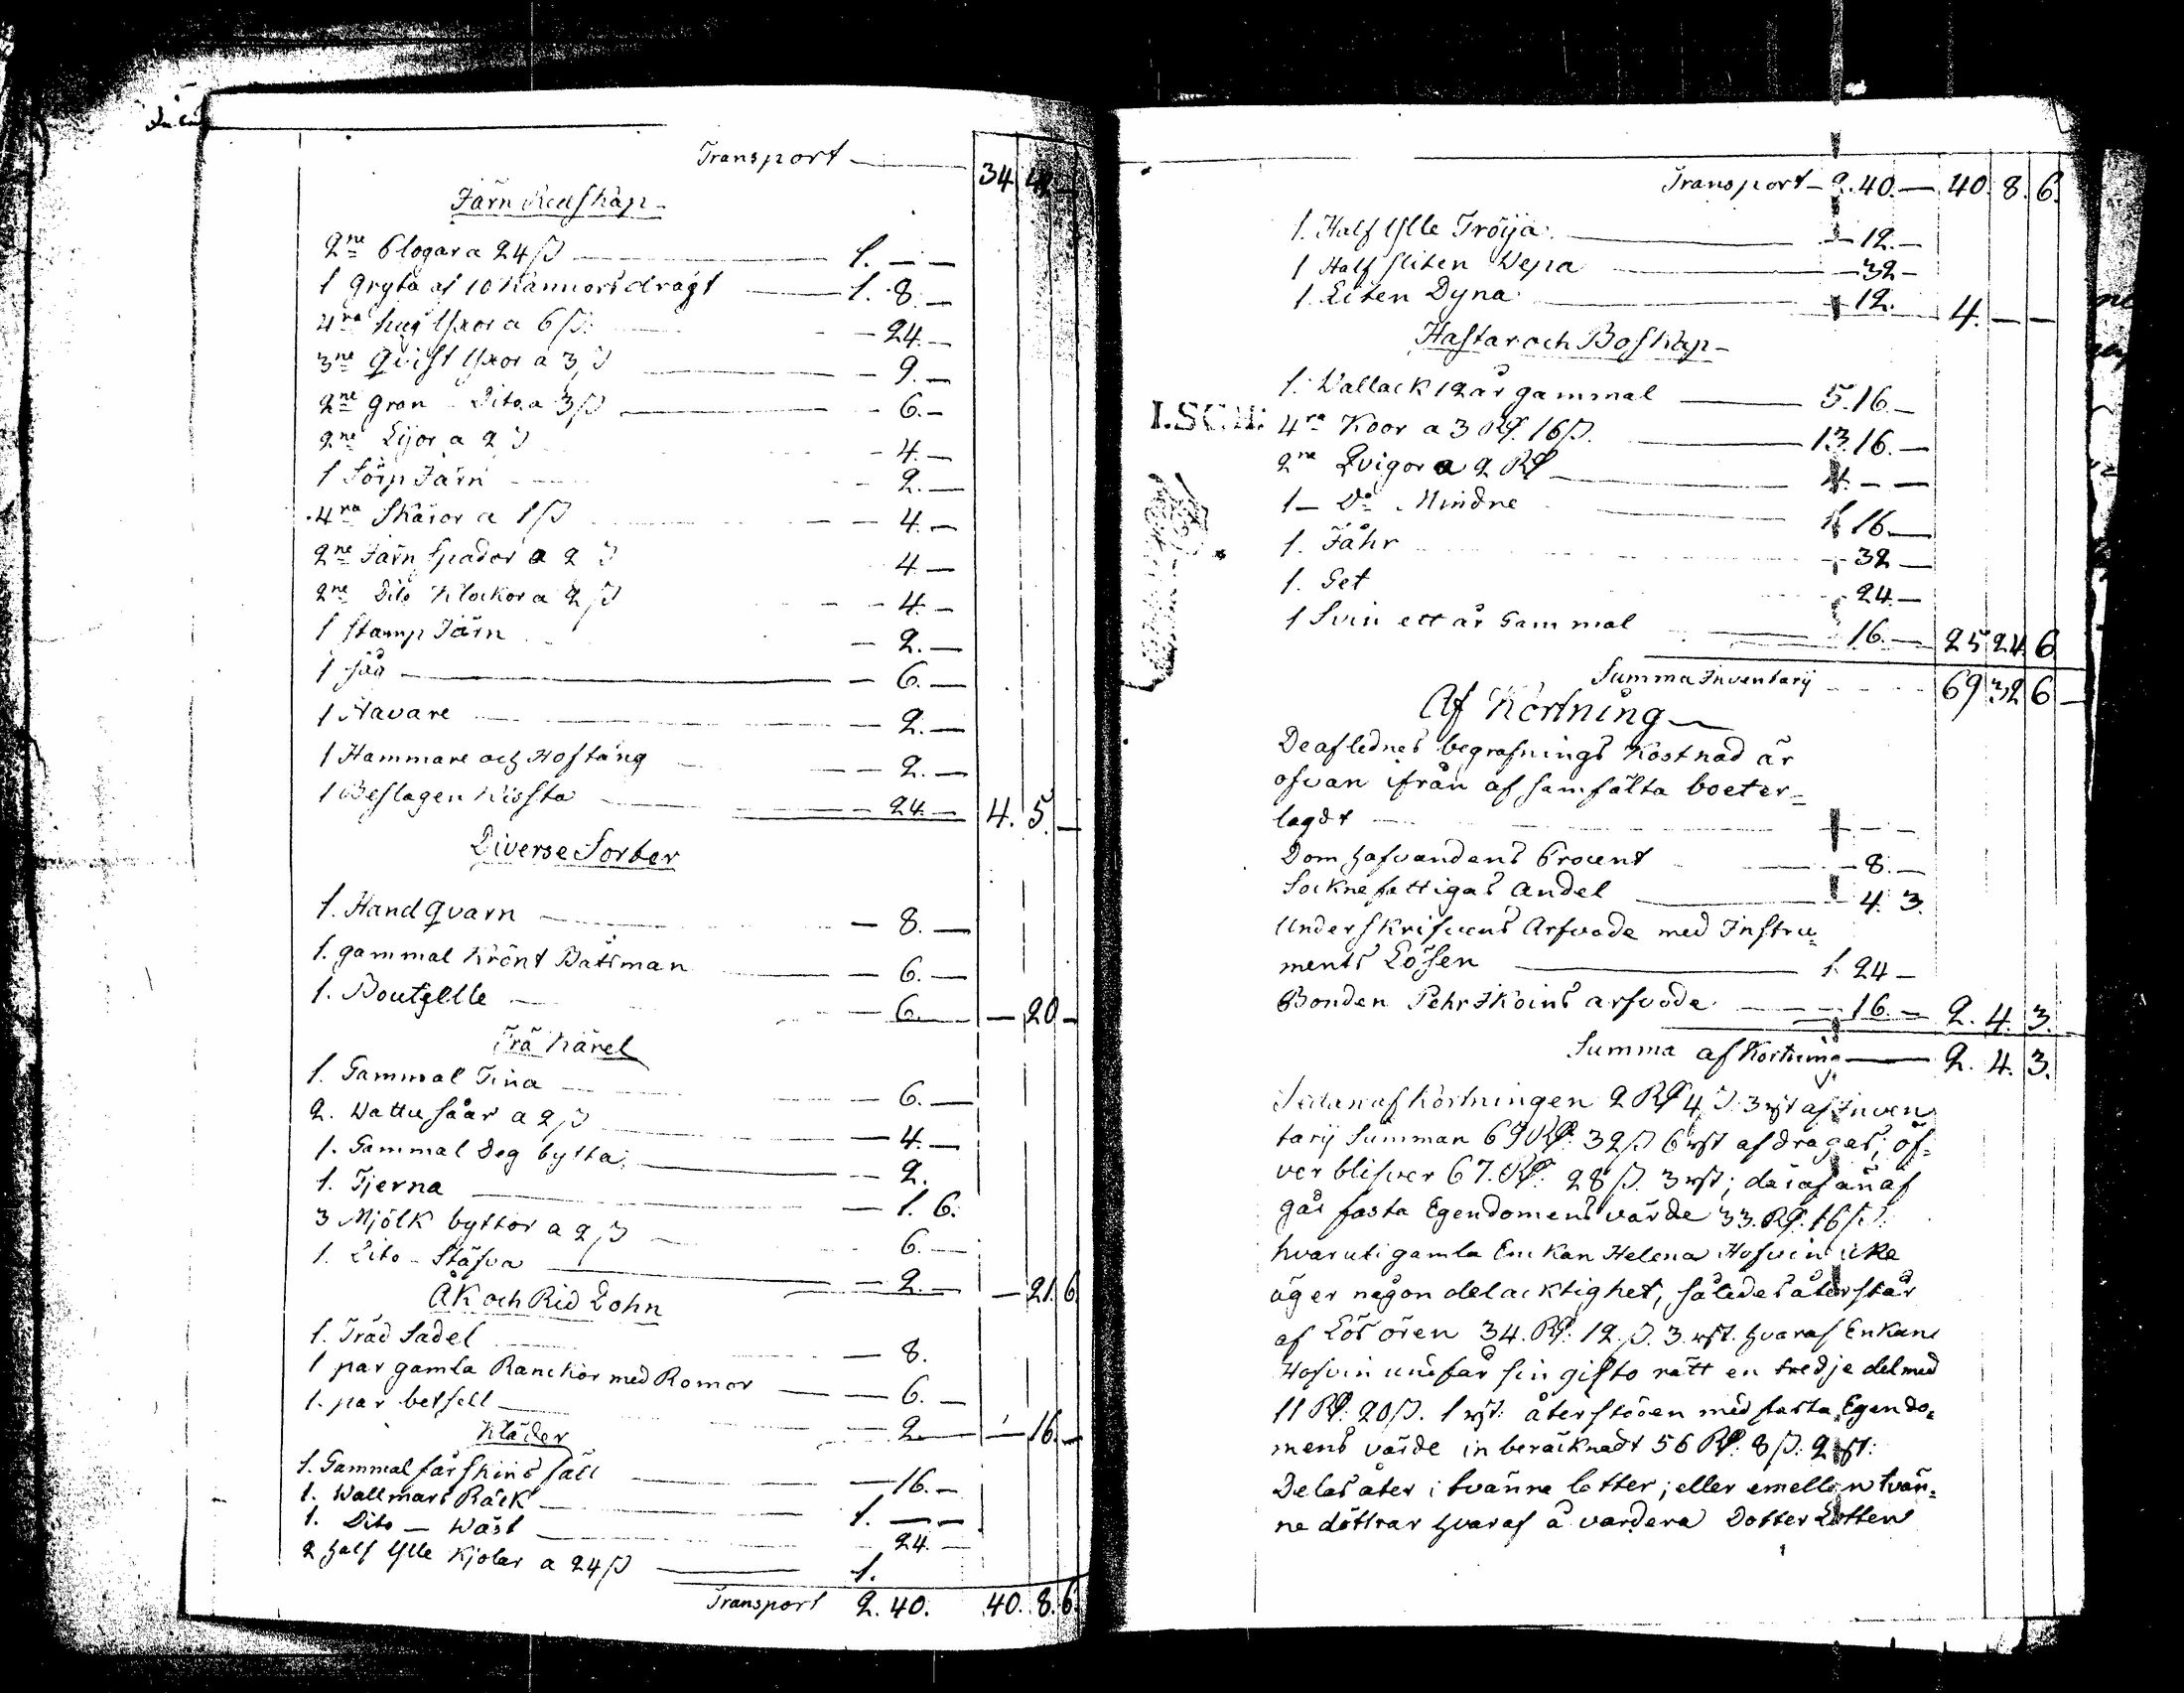 Transport — 34 42 —
Järn Redskap
2ne Plogar a 24 ß — 1. — —
1 Gryta af 10 Kannors dragt — 1. 8. —
4ra hug Yxor a 6 ß — 24. —
3ne Qvist Yxor a 3 ß — 9. —
2ne Gran Dito a 3 ß — 6. —
2ne Lijor a 2 ß — 4. —
1 Sörp Järn — 2. —
4ra Skäror a 1 ß — 4. —
2ne Järn Spador a 2 ß 4 —
2ne Dito Klockor a 2 ß — 4. —
1 Stamp Järn — 2. —
1 Såg — 6. —
1 Navare — 2. —
1 Hammare och Hoftång — 2. —
1 Beslagen Kissta — 24. — 4. 5. —
Diverse Sorter
1. Hand Qvarn — 8. —
1. gammal Krönt Båtsman — 6. —
1. Boutellle — 6. — 20 —
Trä Kärel
1. Gammal Tina — 6. —
2. Wattu Såar a 2 ß — 4. —
1. Gammal Deg bytta — 2.
1. Tjerna — 1. 6.
3 Mjölk byttor a 2 ß — 6. —
1. Dito - Stäfva — 2. — — 21. 6
ÅK och Rid Dohn
1. Träd Sadel — 8.
1 par gamla Ranckor med Romor — 6. —
1. par betsell — 2. — — 16. —
Kläder
1. Gammal fårskins fäll — 16. —
1. Wallmars Råck — 1. — —
1. Dito — Wäst — 24. —
2 half Ylle Kjolar a 24 ß — 1.
Transport 2. 40. 40. 8. 6
Transport — 2. 40. — 40. 8. 6.
1. Half Ylle Tröija — 12. —
1 Half sliten Wepa — 32 —
1. Liten Dyna — 12. 4. — —
Hästar och Boskap
1. Wallack 12 år gammal — 5. 16. —
4ra Koor a 3 Rd. 16 ß. — 13. 16. —
2ne Qvigor a 2 Rd — 4. — —
1 — Do Mindre — 1 16. —
1. Fåhr — 32 —
1. Get — 24. —
1 Svin ett år Gammal — 16. — 25 24 6
Summa Inventarij 69 32 6 —
Af Kortning
De aflednes begrafnings Kostnad är
ofvan ifrån af samfälta boet er=
lagdt — — —
Dom hafvandens Procent — 8. —
Sockne fattigas Andel — 4. 3.
Underskrifvens Arfvode med Instru=
ments Lösen — 1. 24 —
Bonden Pehr Ikoins arfvode — 16. — 2. 4. 3.
Summa af Kortning — 2. 4. 3.
Sedan af Kortningen 2 Rd 4 ß. 3 rst af Inven
tarij Summan 69 Rd. 32 ß 6 rst af drages; öf=
ver blifver 67. Rd. 28 ß. 3 rst; däraf än af
går fasta Egendomens värde 33. Rd. 16 ß.
hvaruti gamla Enkan Helena Hofvin icke
äger någon delacktighet, således återstår
af Lösören 34. Rd. 12. ß. 3. rst. hvaraf Enkan
Hofvin undfår sin gifto rätt en tredje del med
11 Rd. 20 ß. 1 rst. återstoden med fasta Egendo=
mens värde in beräcknadt 56 Rd. 8 ß. 2 rst:
Delas åter i tvänne lotter; eller emellan tvän=
ne döttrar hvaraf å vardera Dotter Lotten